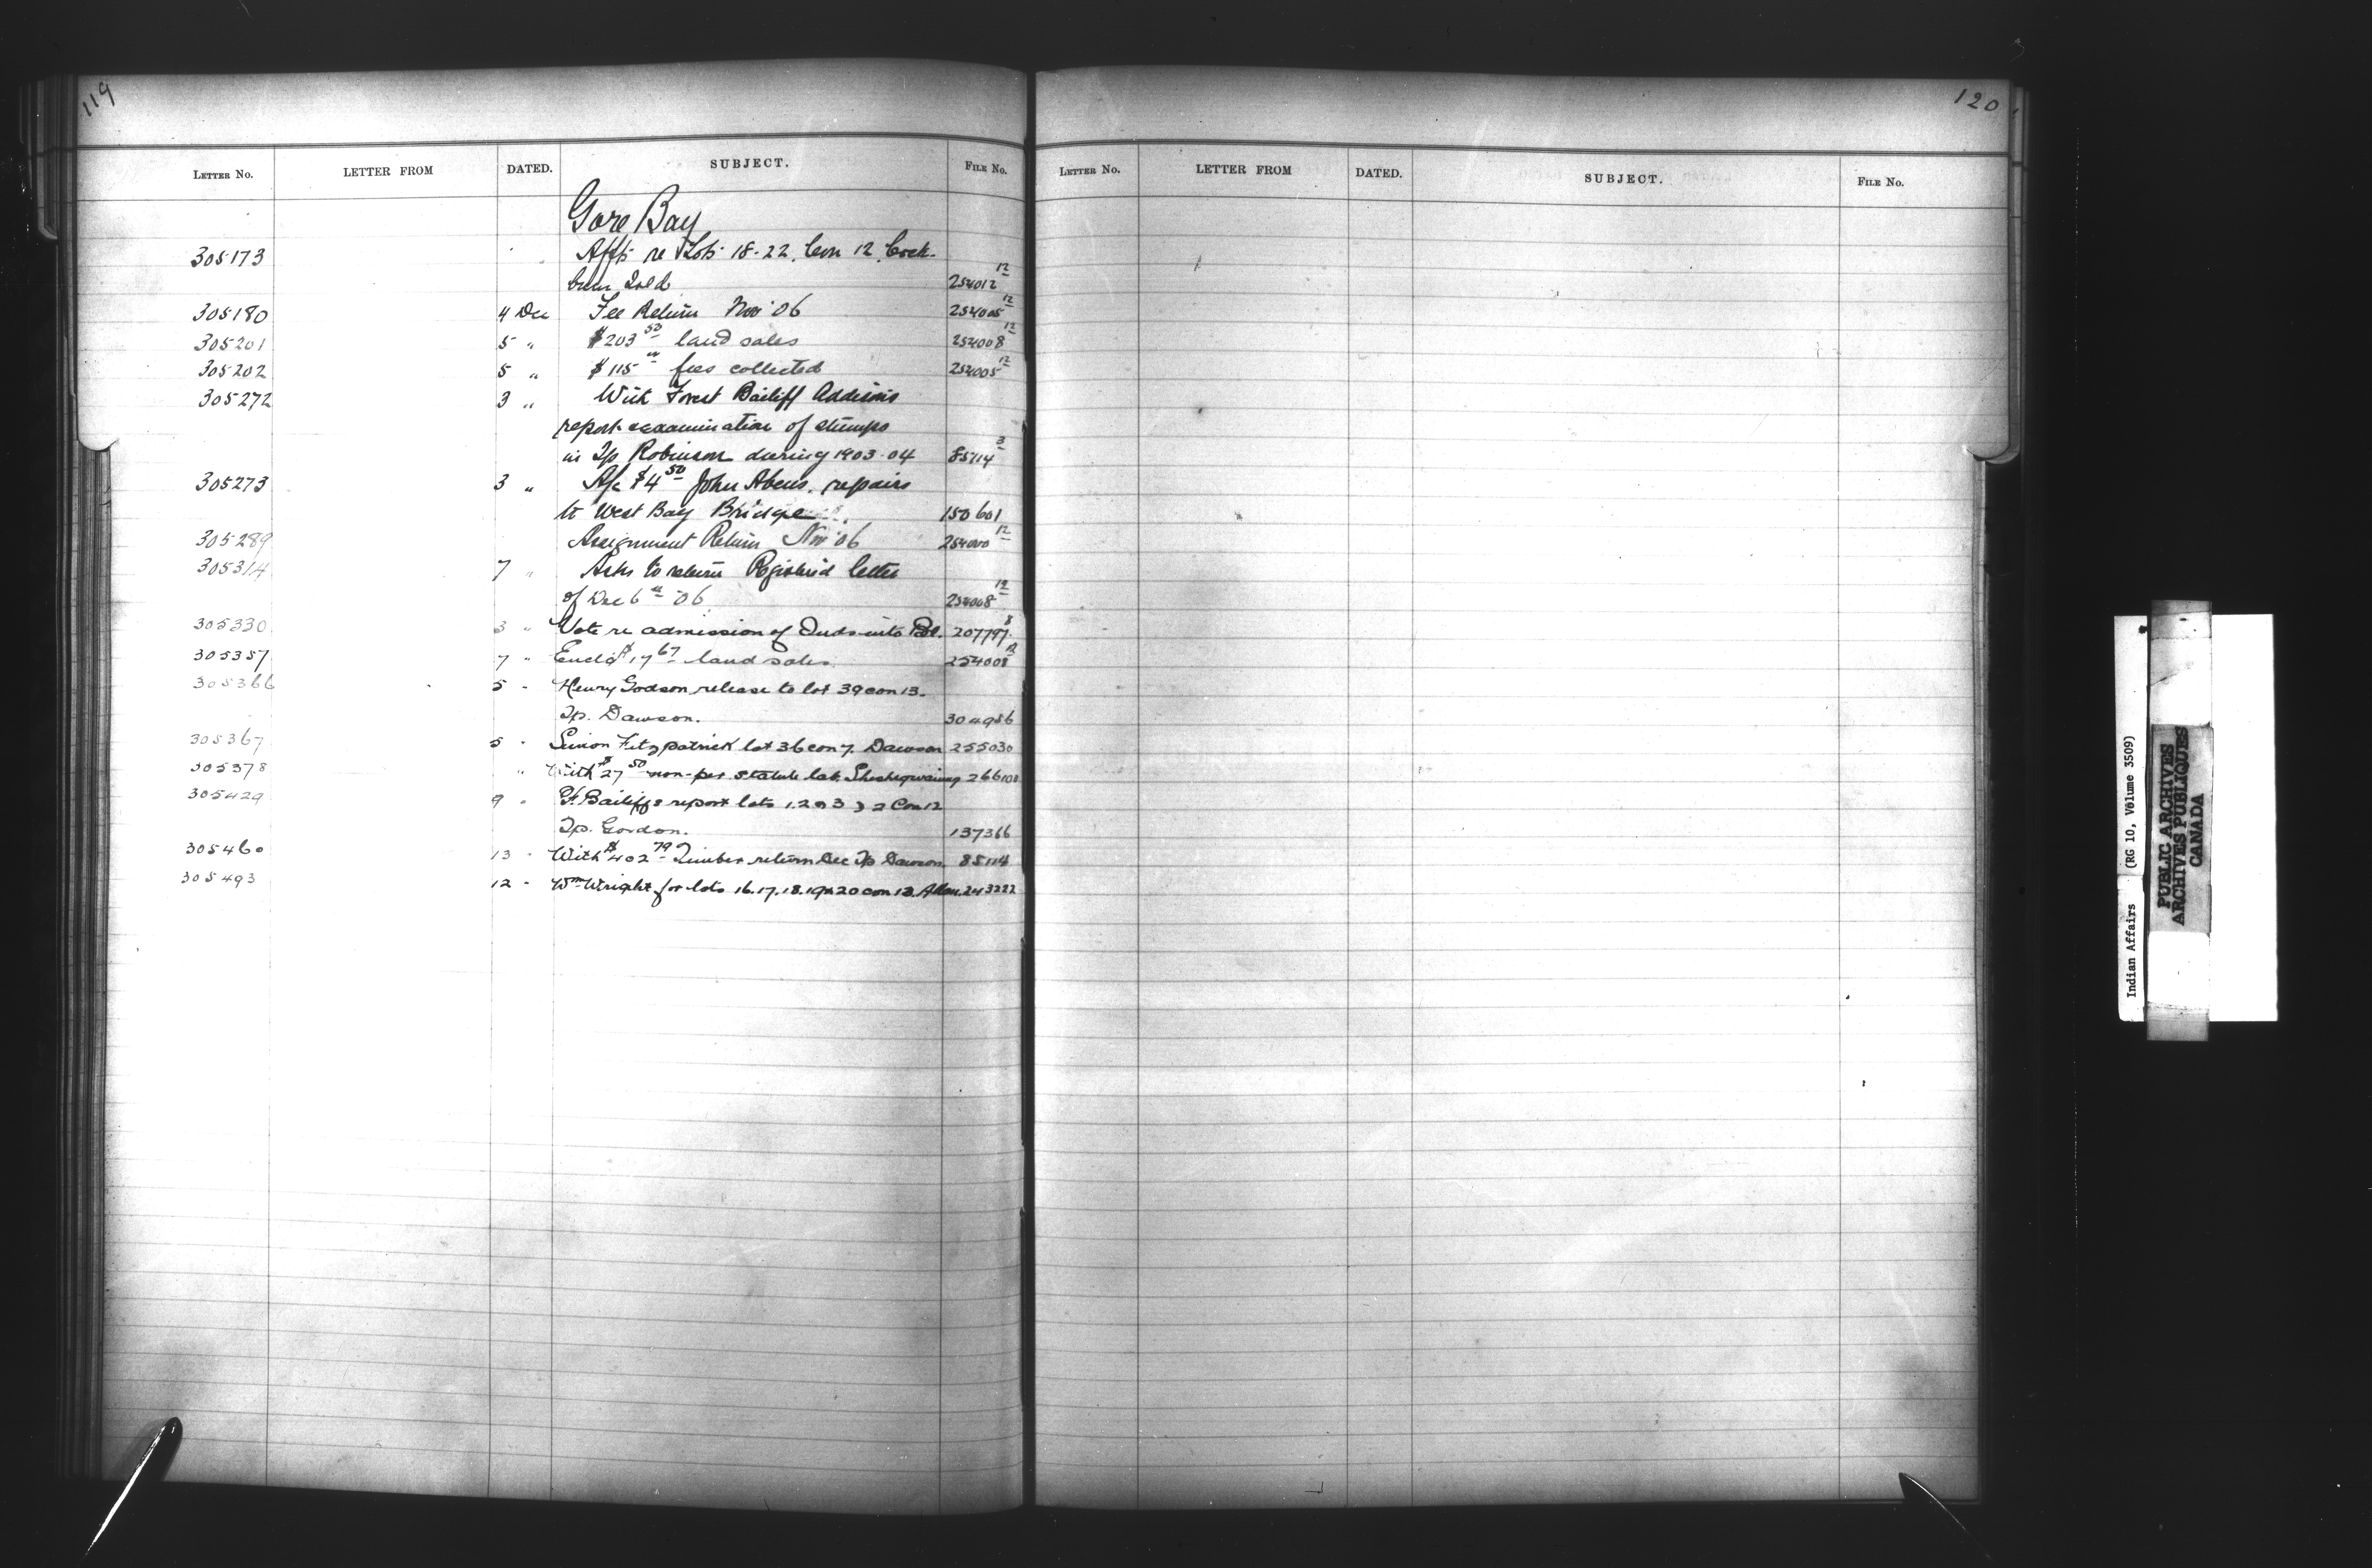 119
LETTER No. LETTER FROM DATED. SUBJECT. FILE No.
Gore Bay
305173 Affts re Lots 18-22. Con 12. Cock-
burn Isld 254012 12
305180 4 Dec Fee Return Nov '06 254005 12
305201 5 " $203 50 land sales 254008 12
305202 5 " $115 fees collected 254005 12
305272 3 " With Forest Bailiff Addison's
report examination of stumps
in Tp Robinson during 1903-04 85114 3
305273 3 " A/c $4 50 John Abens. repairs
to West Bay Bridge 150601
305289 Assignment Return Nov '06 254000 12
305314 7 " Asks to return Registered letter
of Dec 6 th '06 254008 12
305330 3 " Vote re admission of Inds into 207797 8
305357 7 " Encl'd $17 67 land sales 254008 12
305366 5 " Henry Godson release to lot 39 con 13.
Tp. Dawson. 304986
305367 5 " Simon Fitzpatrick lot 36 con 7. Dawson 255030
305378 " With $27 50 non-per. statute lab. Sheshegwaning 266100
305429 9 " F. Bailiffs report lots 1.2 & 3 Con 12
Tp. Gordon. 137366
305460 13 " With $402 79 Timber return Dec Tp Dawson. 85114
305493 12 " Wm Wright for lots 16.17.18.19 & 20 con 13. Allan. 243222
120
LETTER No. LETTER FROM DATED. SUBJECT. FILE No.
Indian Affairs (RG 10, Volume 3509)
PUBLIC ARCHIVES
ARCHIVES PUBLIQUES
CANADA